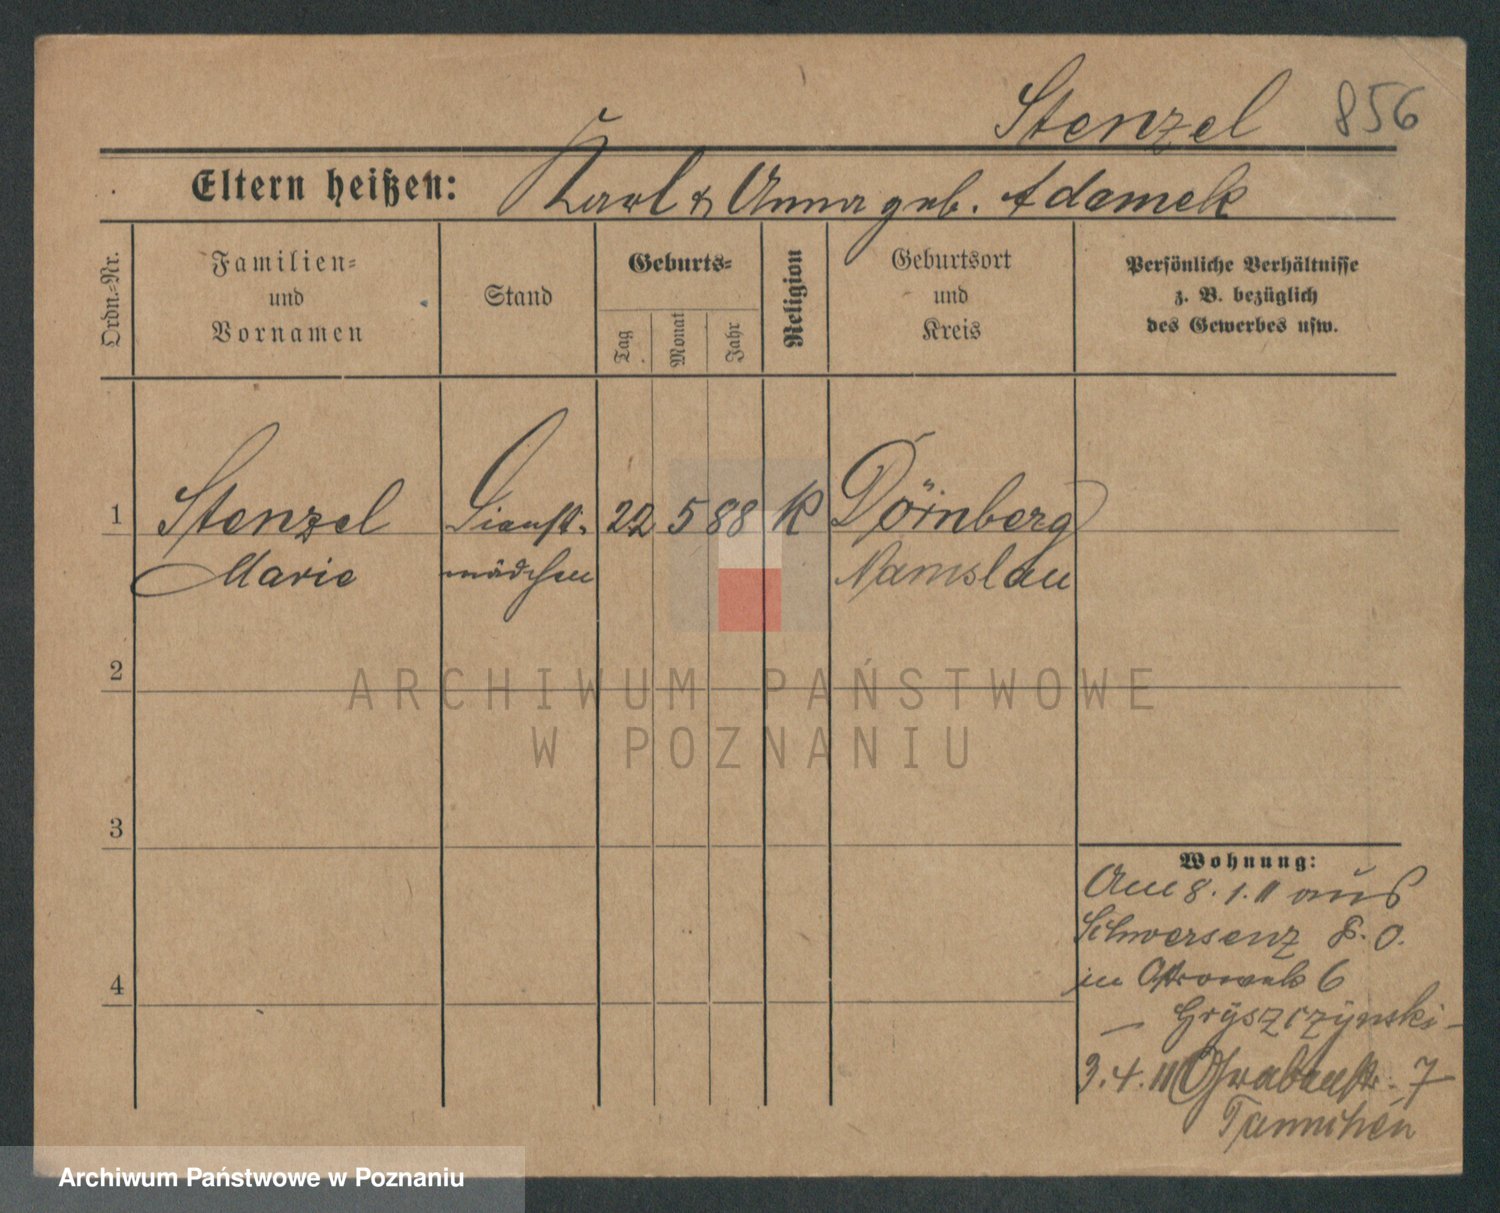 Stenzel 856
Eltern heißen: Karl & Anna geb. Adamek
Ordn.-Nr.
Familien-
und
Vornamen
Stand
Geburts-
Tag
Monat
Jahr
Religion
Geburtsort
und
Kreis
Persönliche Verhältnisse
z. B. bezüglich
des Gewerbes usw.
1 Stenzel Dienst- 22 5 88 K Dörnberg
Marie mädchen Namslau
2
3
4
Wohnung:
Am 8.1.11 aus
Schwersenz P. O.
in Ostrowek 6
— Gryszczynski —
3.4.11 Grabenstr. 7
ARCHIWUM PAŃSTWOWE
W POZNANIU
Archiwum Państwowe w Poznaniu